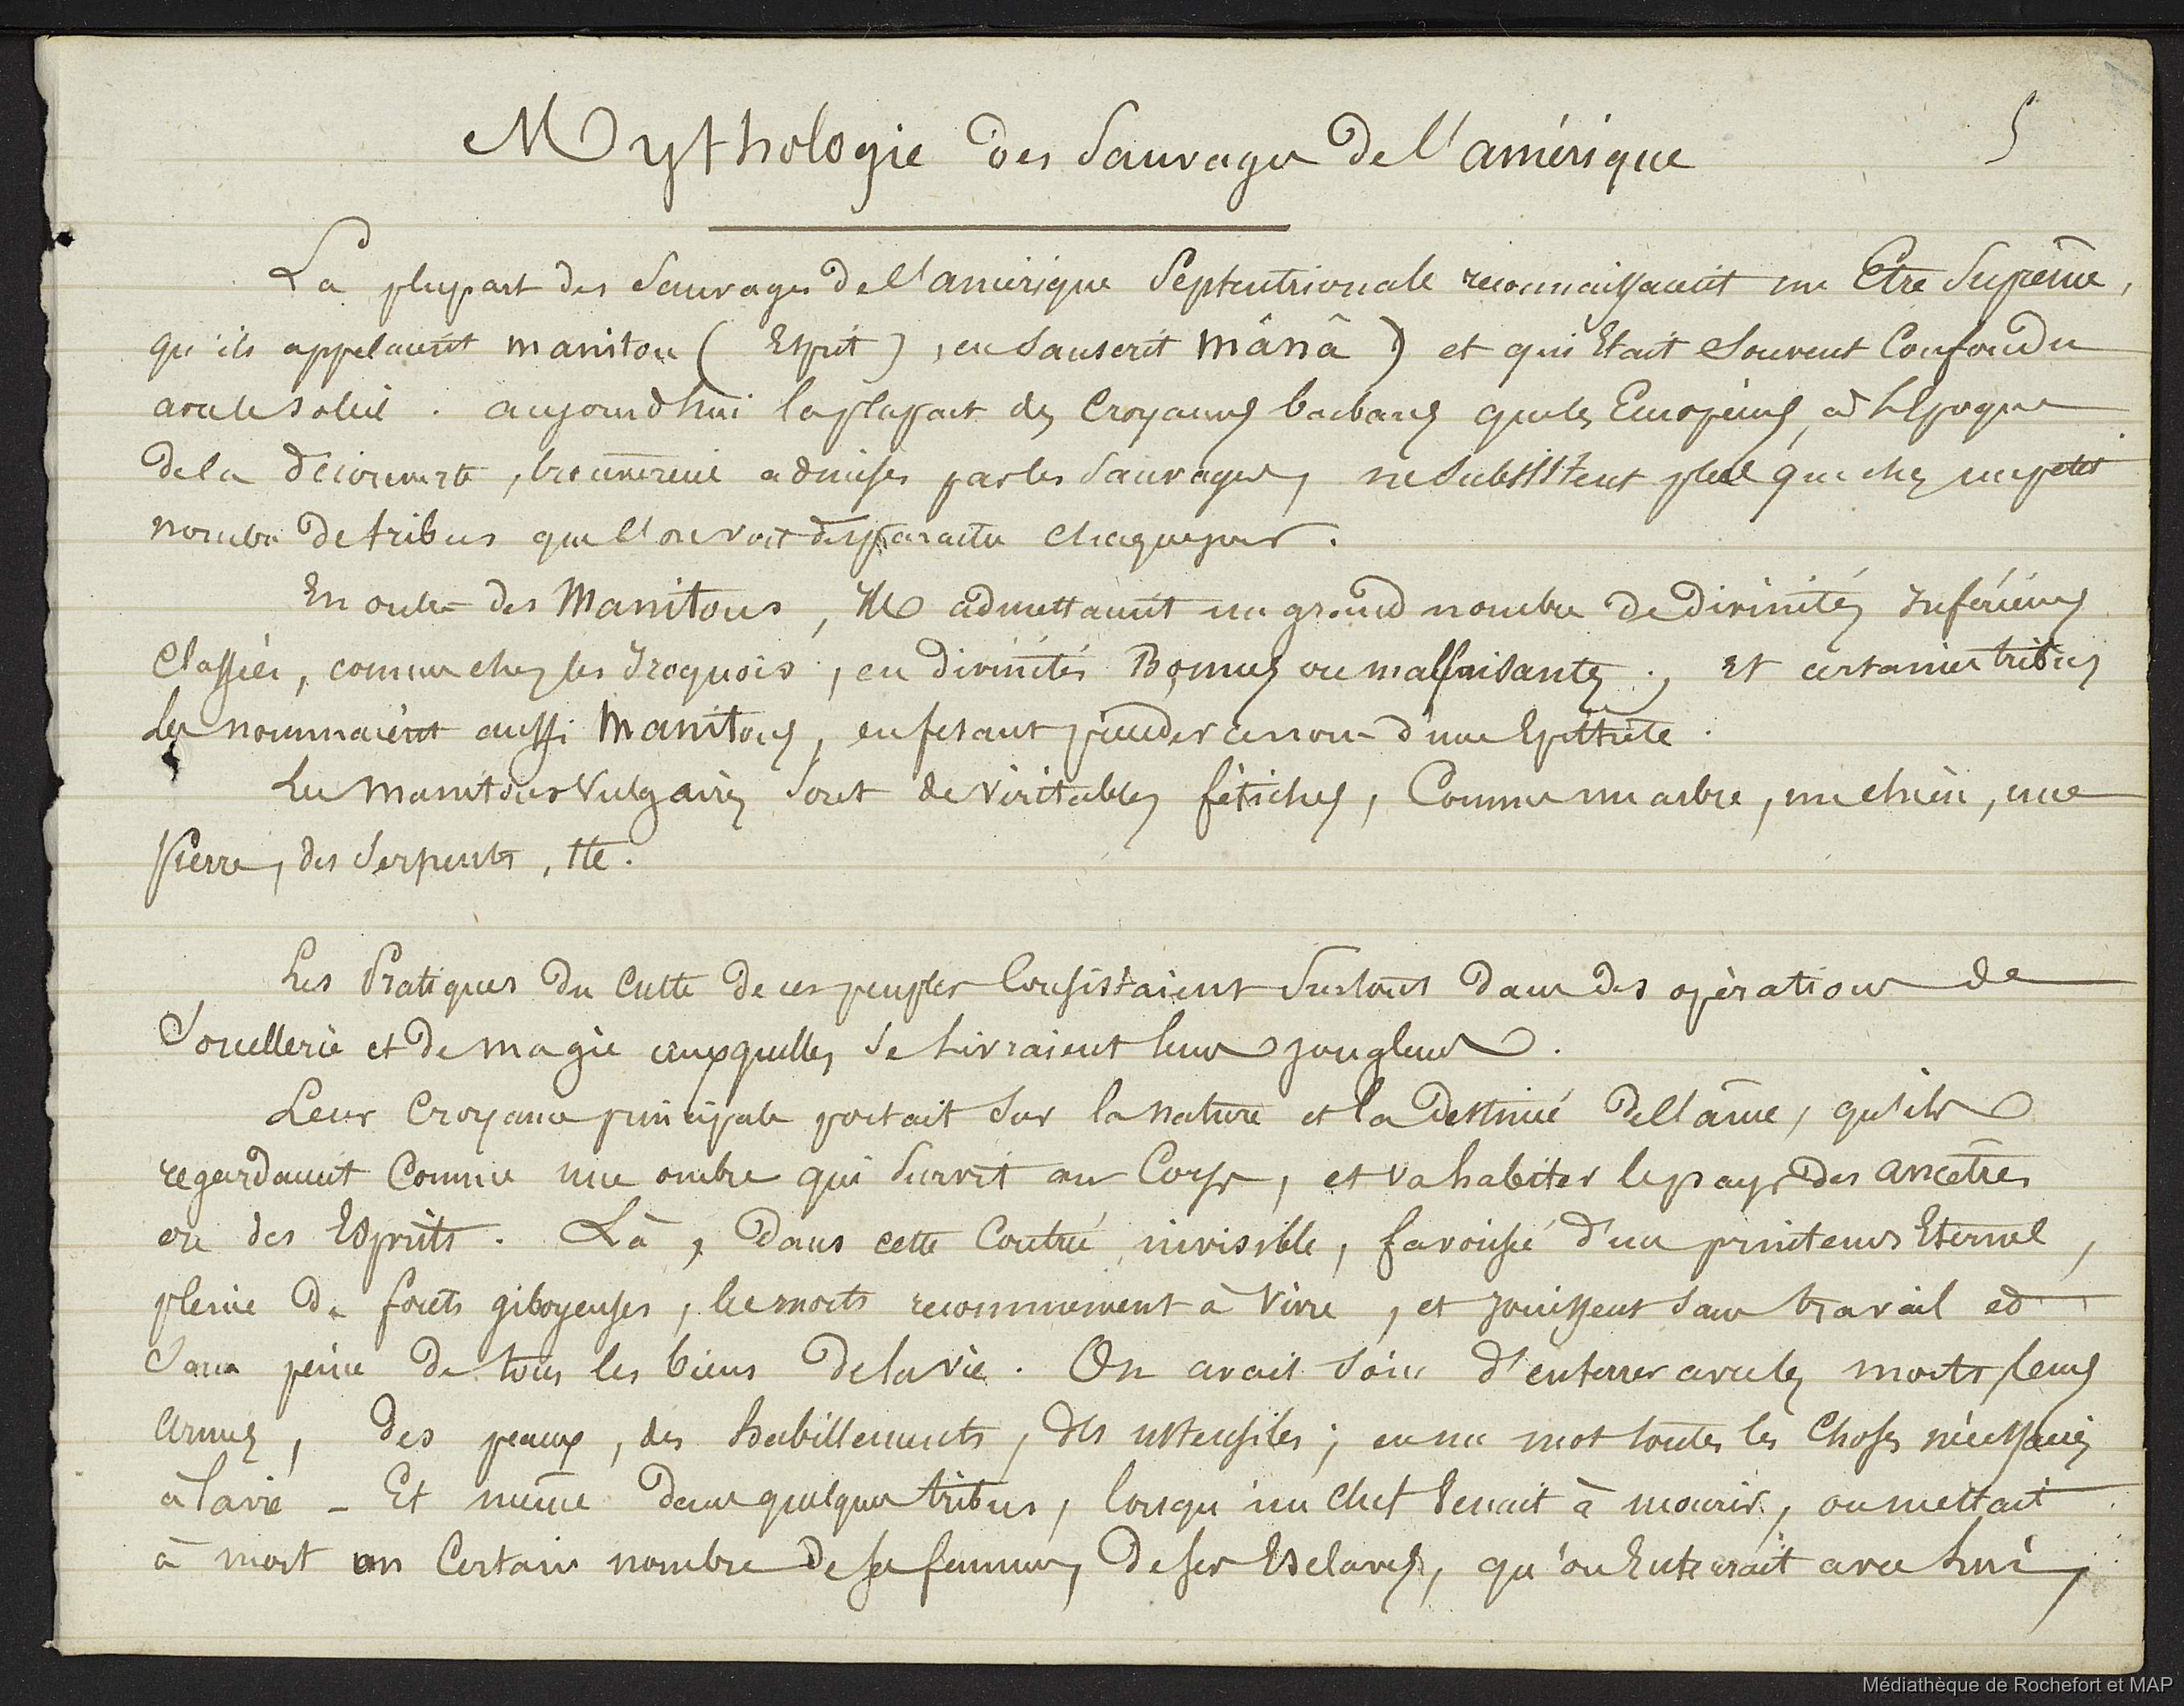 Mythologie des Sauvages de l'amérique
5
La plupart des Sauvages de l'amérique Septentrionale reconnaissaient un Etre Suprême,
qu'ils appelaient manitou ( Esprit ), en Sanscrit mânâ ) et qui Etait Souvent Confondu
avec le Soleil. aujourd'hui la plupart des Croyances barbares que les Européens, à l'Epoque
de la découverte, trouvèrent admises par les Sauvages, ne subsistent plus que chez un petit
nombre de tribus que l'on voit disparaitre chaque jour.
En outre des Manitous, Ils admettaient un grand nombre de divinités Inférieures
Classées, comme chez les Iroquois, en divinités Bonnes ou malfaisantes ; et certaines tribus
les nommaient aussi Manitous, en fesant précéder ce nom d'une Epithète.
Les Manitous Vulgaires sont de véritables fétiches, Comme un arbre, un chien, une
Pierre, des Serpents, etc.
Les Pratiques du Culte de ces peuples Consistaient Surtout dans des opérations de
Sorcellerie et de magie auxquelles se Livraient leurs jongleurs.
Leur Croyance principale portait sur la nature et la destinée de l'âme, qu'ils
regardaient Comme une ombre qui survit au Corps, et va habiter le pays des ancêtres
ou des Esprits. Là, dans cette Contrée invisible, favorisée d'un printems Eternel,
pleine de forêts giboyeuses, les morts recommencent à vivre, et jouissent sans travail et
Sans peine de tous les biens de la vie. On avait soin d'enterrer avec les morts leurs
armes, des peaux, des habillements, des ustensiles ; en un mot toutes les Choses nécessaires
à la vie - Et même dans quelques tribus, lorsqu'un Chef Venait à mourir, on mettait
à mort un Certain nombre de ses femmes, de ses Esclaves, qu'on Enterrait avec Lui,
Médiathèque de Rochefort et MAP